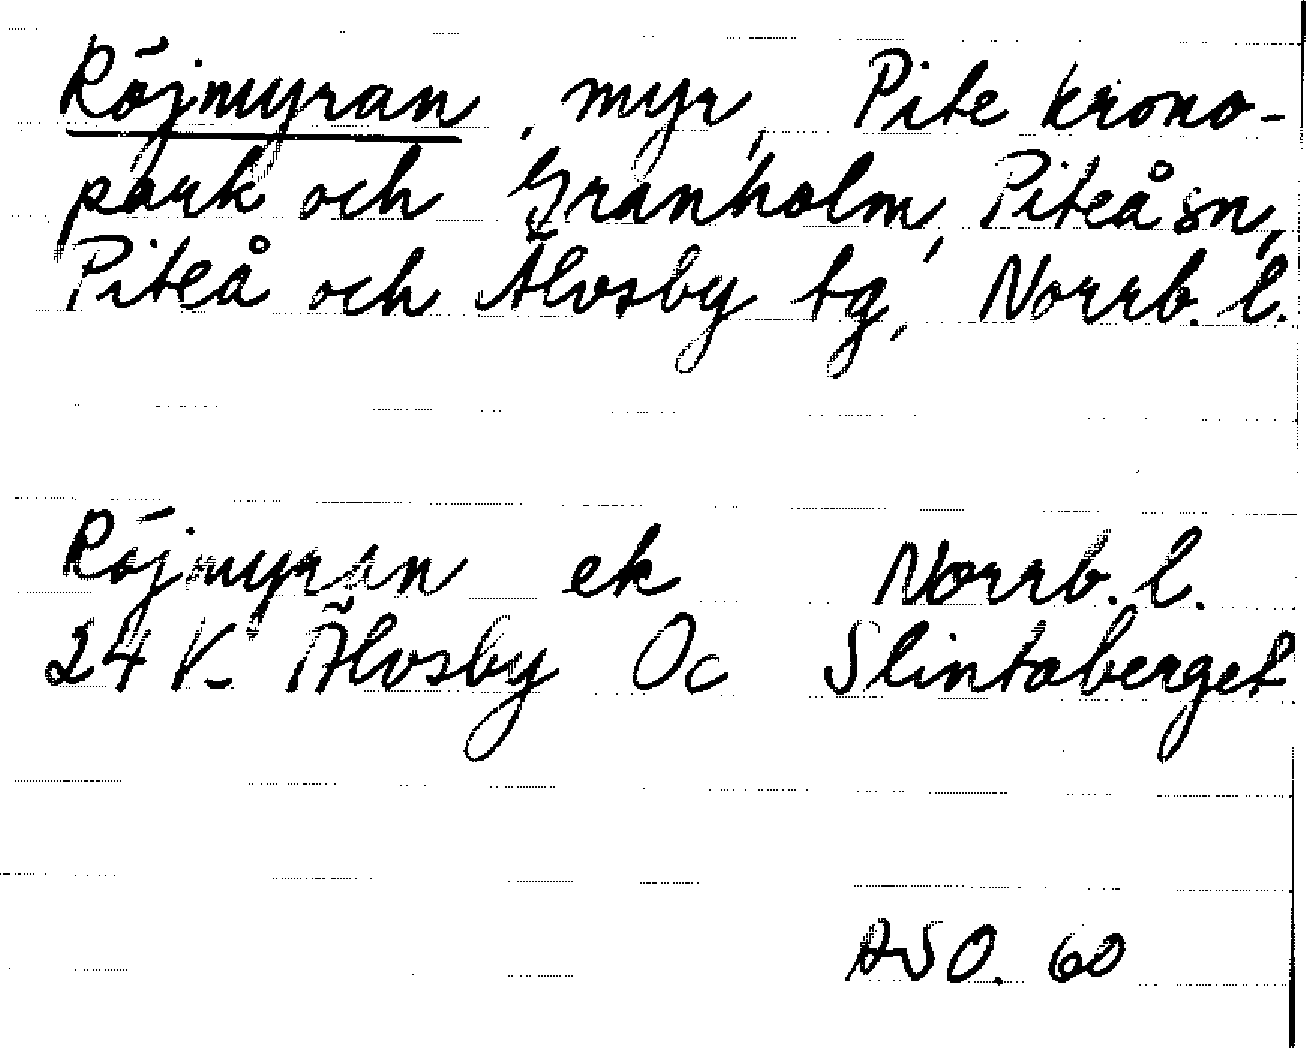 Röjmyran, myr, Pite krono-
park och Granholm, Piteå sn,
Piteå och Älvsby tg, Norrb. l.
Röjmyran ek Norrb. l.
24 K Älvsby Oc Slintaberget
ASO. 60